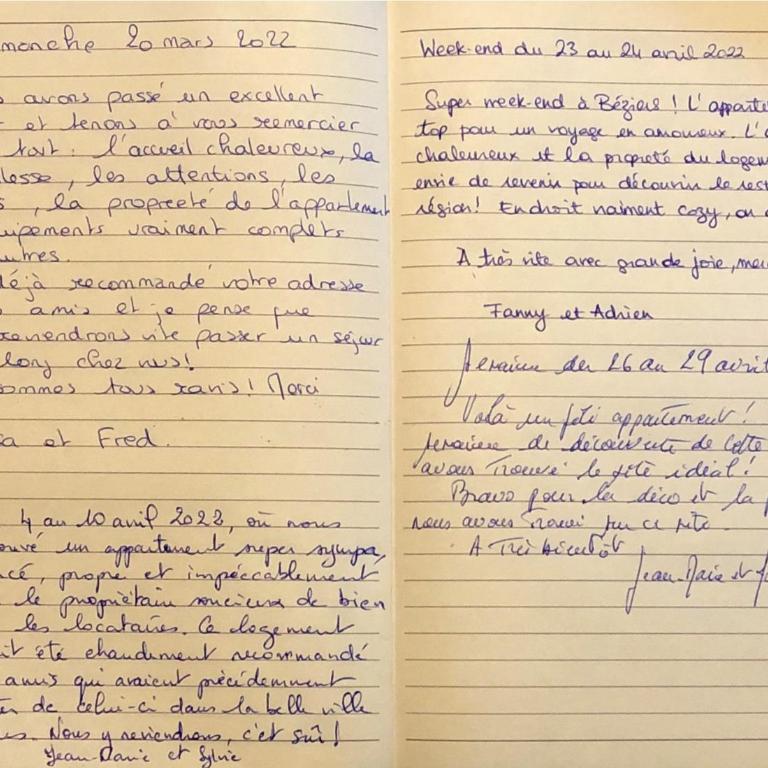 manche 20 mars 2022
avons passé un excellent
et tenons à vous remercier
tout : l'accueil chaleureux, la
lesse, les attentions, les
, la propreté de l'appartement
uipements vraiment complets
utres.
déjà recommandé votre adresse
amis et je pense que
reviendrons vite passer un séjour
long chez vous!
ommes tous ravis! Merci
a et Fred.
4 au 10 avril 2022, où nous
ouvé un appartement super sympa,
cé, propre et impéccablement
le propriétaire soucieux de bien
les locataires. Ce logement
it été chaudement recommandé
amis qui avaient précédemment
de celui-ci dans la belle ville
es. Nous y reviendrons, c'est sûr!
Jean-Marie et Sylvie
Week-end du 23 au 24 avril 2022
Super week-end à Béziers ! L'apparte
top pour un voyage en amoureux. L'a
chaleureux et la propreté du logem
envie de revenir pour découvrir le rest
région! Endroit vraiment cozy, on a
A très vite avec grande joie, mer
Fanny et Adrien
Semaine du 26 au 29 avril
Voilà un joli appartement!
semaine de découverte de cette
avons trouvé le gîte idéal!
Bravo pour la déco et la
nous avons trouvé sur ce gîte.
A Très bientôt
Jean-Marie et